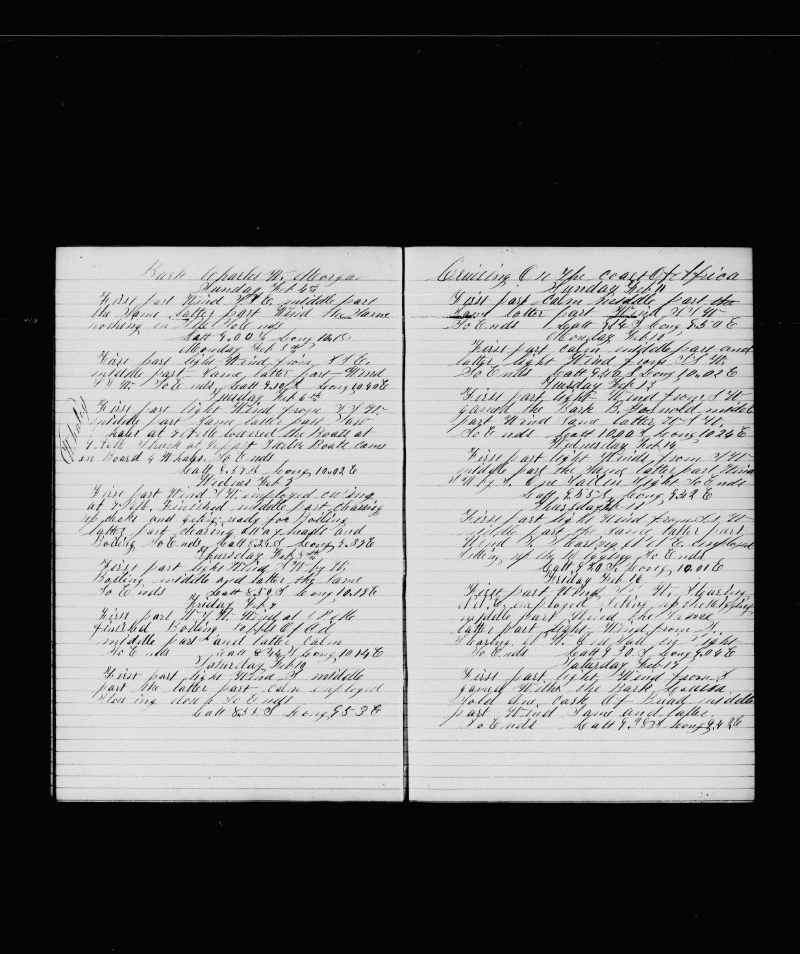 Bark Charles W. Morgan
Sunday Feb 4th
First part Wind S S E middle part
the Same latter part Wind the Same
nothing in Site So Ends
Latt 9.00 S Long 10.15
Monday Feb 5th
First part light Wind from S S E
middle part Same latter part Wind
S S W So Ends Latt 9.10 S Long 10.40 E
Tuesday Feb 6th
First part light Wind from S S W
middle part Same latter part Saw
Whales at lowered the Boats at
Struck at Larbor Boat came
on Board 4 Whales So Ends
4 Whales
Latt 8.37 S Long 10.02 E
Wednes Feb 7
First part Wind S W employed cuting
at Finished middle part clearing
up decks and geting ready for Boiling
latter part clearing away heads and
Boiling So Ends Latt 8.24 S Long 9.33 E
Thursday Feb 8th
First part light Wind S W by W
Boiling middle and latter the Same
So Ends Latt 8.50 S Long 10.18 E
Friday Feb 9
First part W S W Wind at
finished Boiling Of Oil
middle part and latter Calm
So Ends Latt 8.44 S Long 10.14 E
Saturday Feb 10
First part light Wind S middle
part the latter part calm employed
Stowing down So Ends
Latt 8.53 S Long 9.53 E
Cruising On The coast Of Africa
Sunday Feb 11
First part calm middle part the
Same latter part Wind S S W
So Ends Latt S Long 9.50 E
Monday Feb 12
First part calm middle part and
latter light Wind from S S W
So Ends Latt 9.46 S Long 10.02 E
Tuesday Feb 13
First part light Wind from S W
gamed the Bark B. Gosnold middle
part Wind Same latter W S W
So Ends Latt 10.00 S Long 10.24 E
Wednesday Feb 14
First part light Winds from S S W
middle part the Same latter part Wind
S W by S. One Sail in Sight So Ends
Latt 9.55 S Long 9.42 E
Thursday Feb 15
First part light Wind from S S W
middle part the Same latter part
Wind S Stearing employed
Siting up the Rigging So Ends
Latt 9.20 S Long 10.01 E
Friday Feb 16
First part Wind S. W. Stearing
employed Siting up the Rigging
middle part Wind the Same
latter part light Wind from S.
Stearing Sail in Sight
So Ends Latt 9.30 S Long 9.04 E
Saturday Feb 17
First part light Wind from S
gamed With the Bark Louisa
Sold One cask Of Bread middle
part Wind Same and latter
So Ends Latt 9.38 S Long 9.42 E